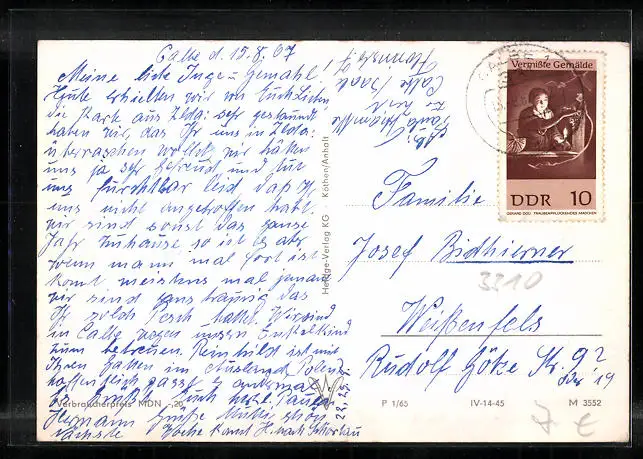 Calbe d. 15.8.67
Meine liebe Inge = Gemahl!
Heute erhielten wir von Euch Lieben
die Karte aus
haben wir, das Ihr uns in
überraschen wolltet, wir hätten
uns ja sehr gefreut und tut
uns furchtbar leid das Ihr
uns nicht angetroffen habt.
wir sind sonst das ganze
Jahr zuhause so ist es aber
wenn mann mal fort ist
kommt meistens mal jemand
wir sind ganz traurig das
Ihr solch Pech hattet. Wir sind
in Calbe wegen unsern Enkelkind
zum betreuen. Reinhild ist mit
Ihren Gatten im Ausland Polen
hoffentlich passt es andermal.
Es grüßt Euch herzl. Tante
Hermann Grüße
nächste Woche kommt H. nach
Verbraucherpreis MDN -,20
Heldge-Verlag KG Köthen/Anhalt
Calbe Saale
Vermißte Gemälde
DDR 10
GERARD DOU TRAUBENPFLÜCKENDES MÄDCHEN
Familie
Josef
3310
Weißenfels
Rudolf Götze Str. 9
P 1/65 IV-14-45 M 3552